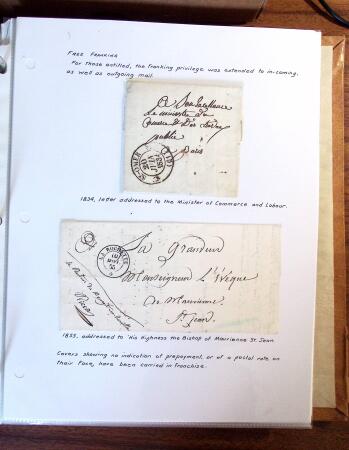 FREE FRANKING
For those entitled, the franking privilege was extended to in-coming,
as well as outgoing mail.
A Son Excellence
Le ministre du
public
a Paris
1834, letter addressed to the Minister of Commerce and Labour.
LA ROCHETTE
Sa Grandeur
Monseigneur L'Evêque
de Maurienne
St Jean
1855, addressed to 'His Highness the Bishop of Maurienne St. Jean
Covers showing no indication of prepayment, or of a postal rate on
their face, have been carried in franchise.